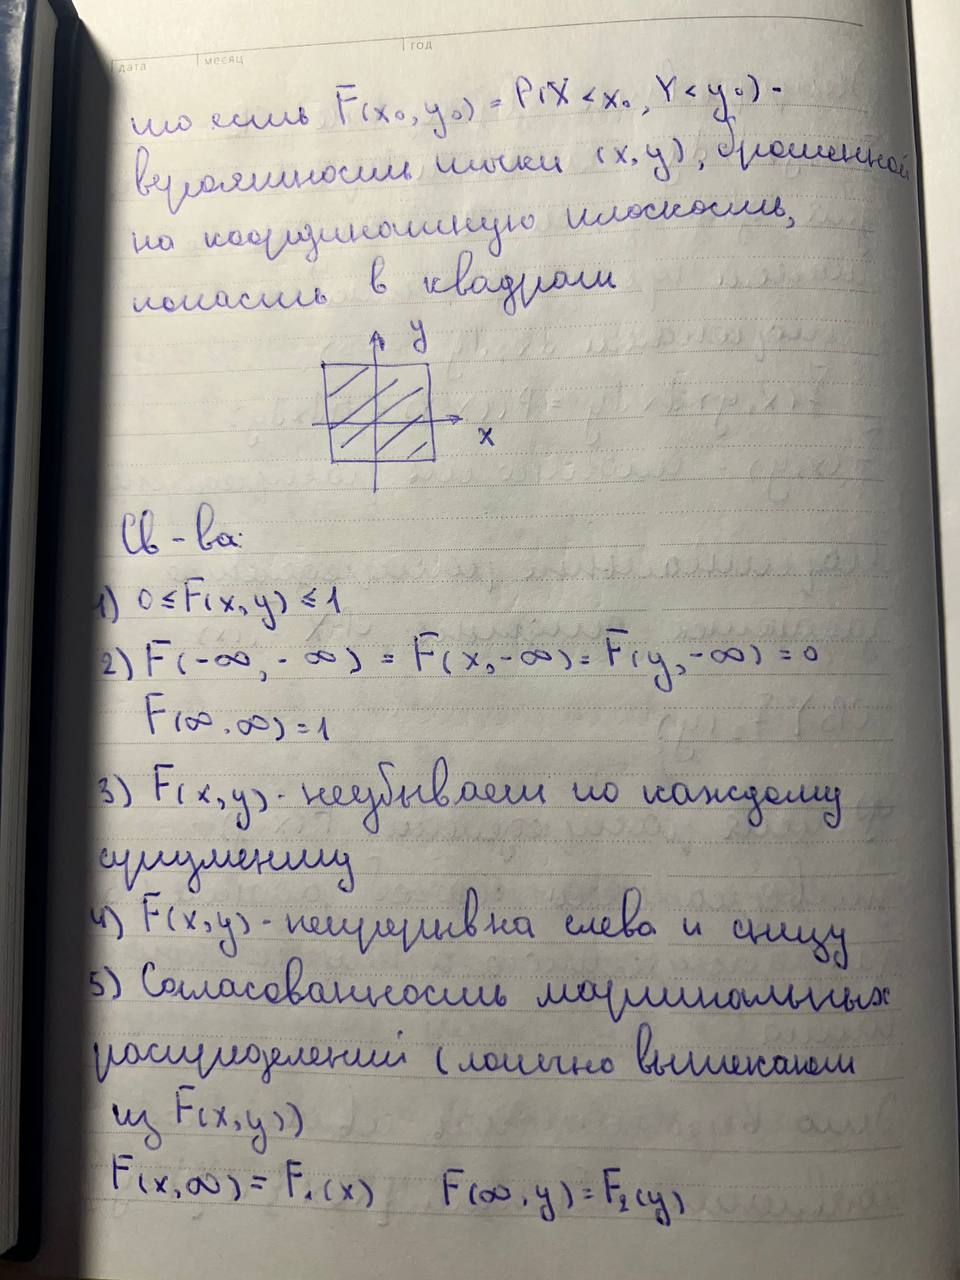 дата месяц год
то есть F(x₀, y₀) = P(X < x₀, Y < y₀) -
вероятность точки (x, y), брошенной
на координатную плоскость,
попасть в квадрат
y
x
Св-ва:
1) 0 ≤ F(x, y) ≤ 1
2) F(-∞, -∞) = F(x, -∞) = F(y, -∞) = 0
F(∞, ∞) = 1
3) F(x, y) - неубывает по каждому
аргументу
4) F(x, y) - непрерывна слева и снизу
5) Согласованность маргинальных
распределений (логично вытекает
из F(x, y))
F(x, ∞) = F₁(x) F(∞, y) = F₂(y)